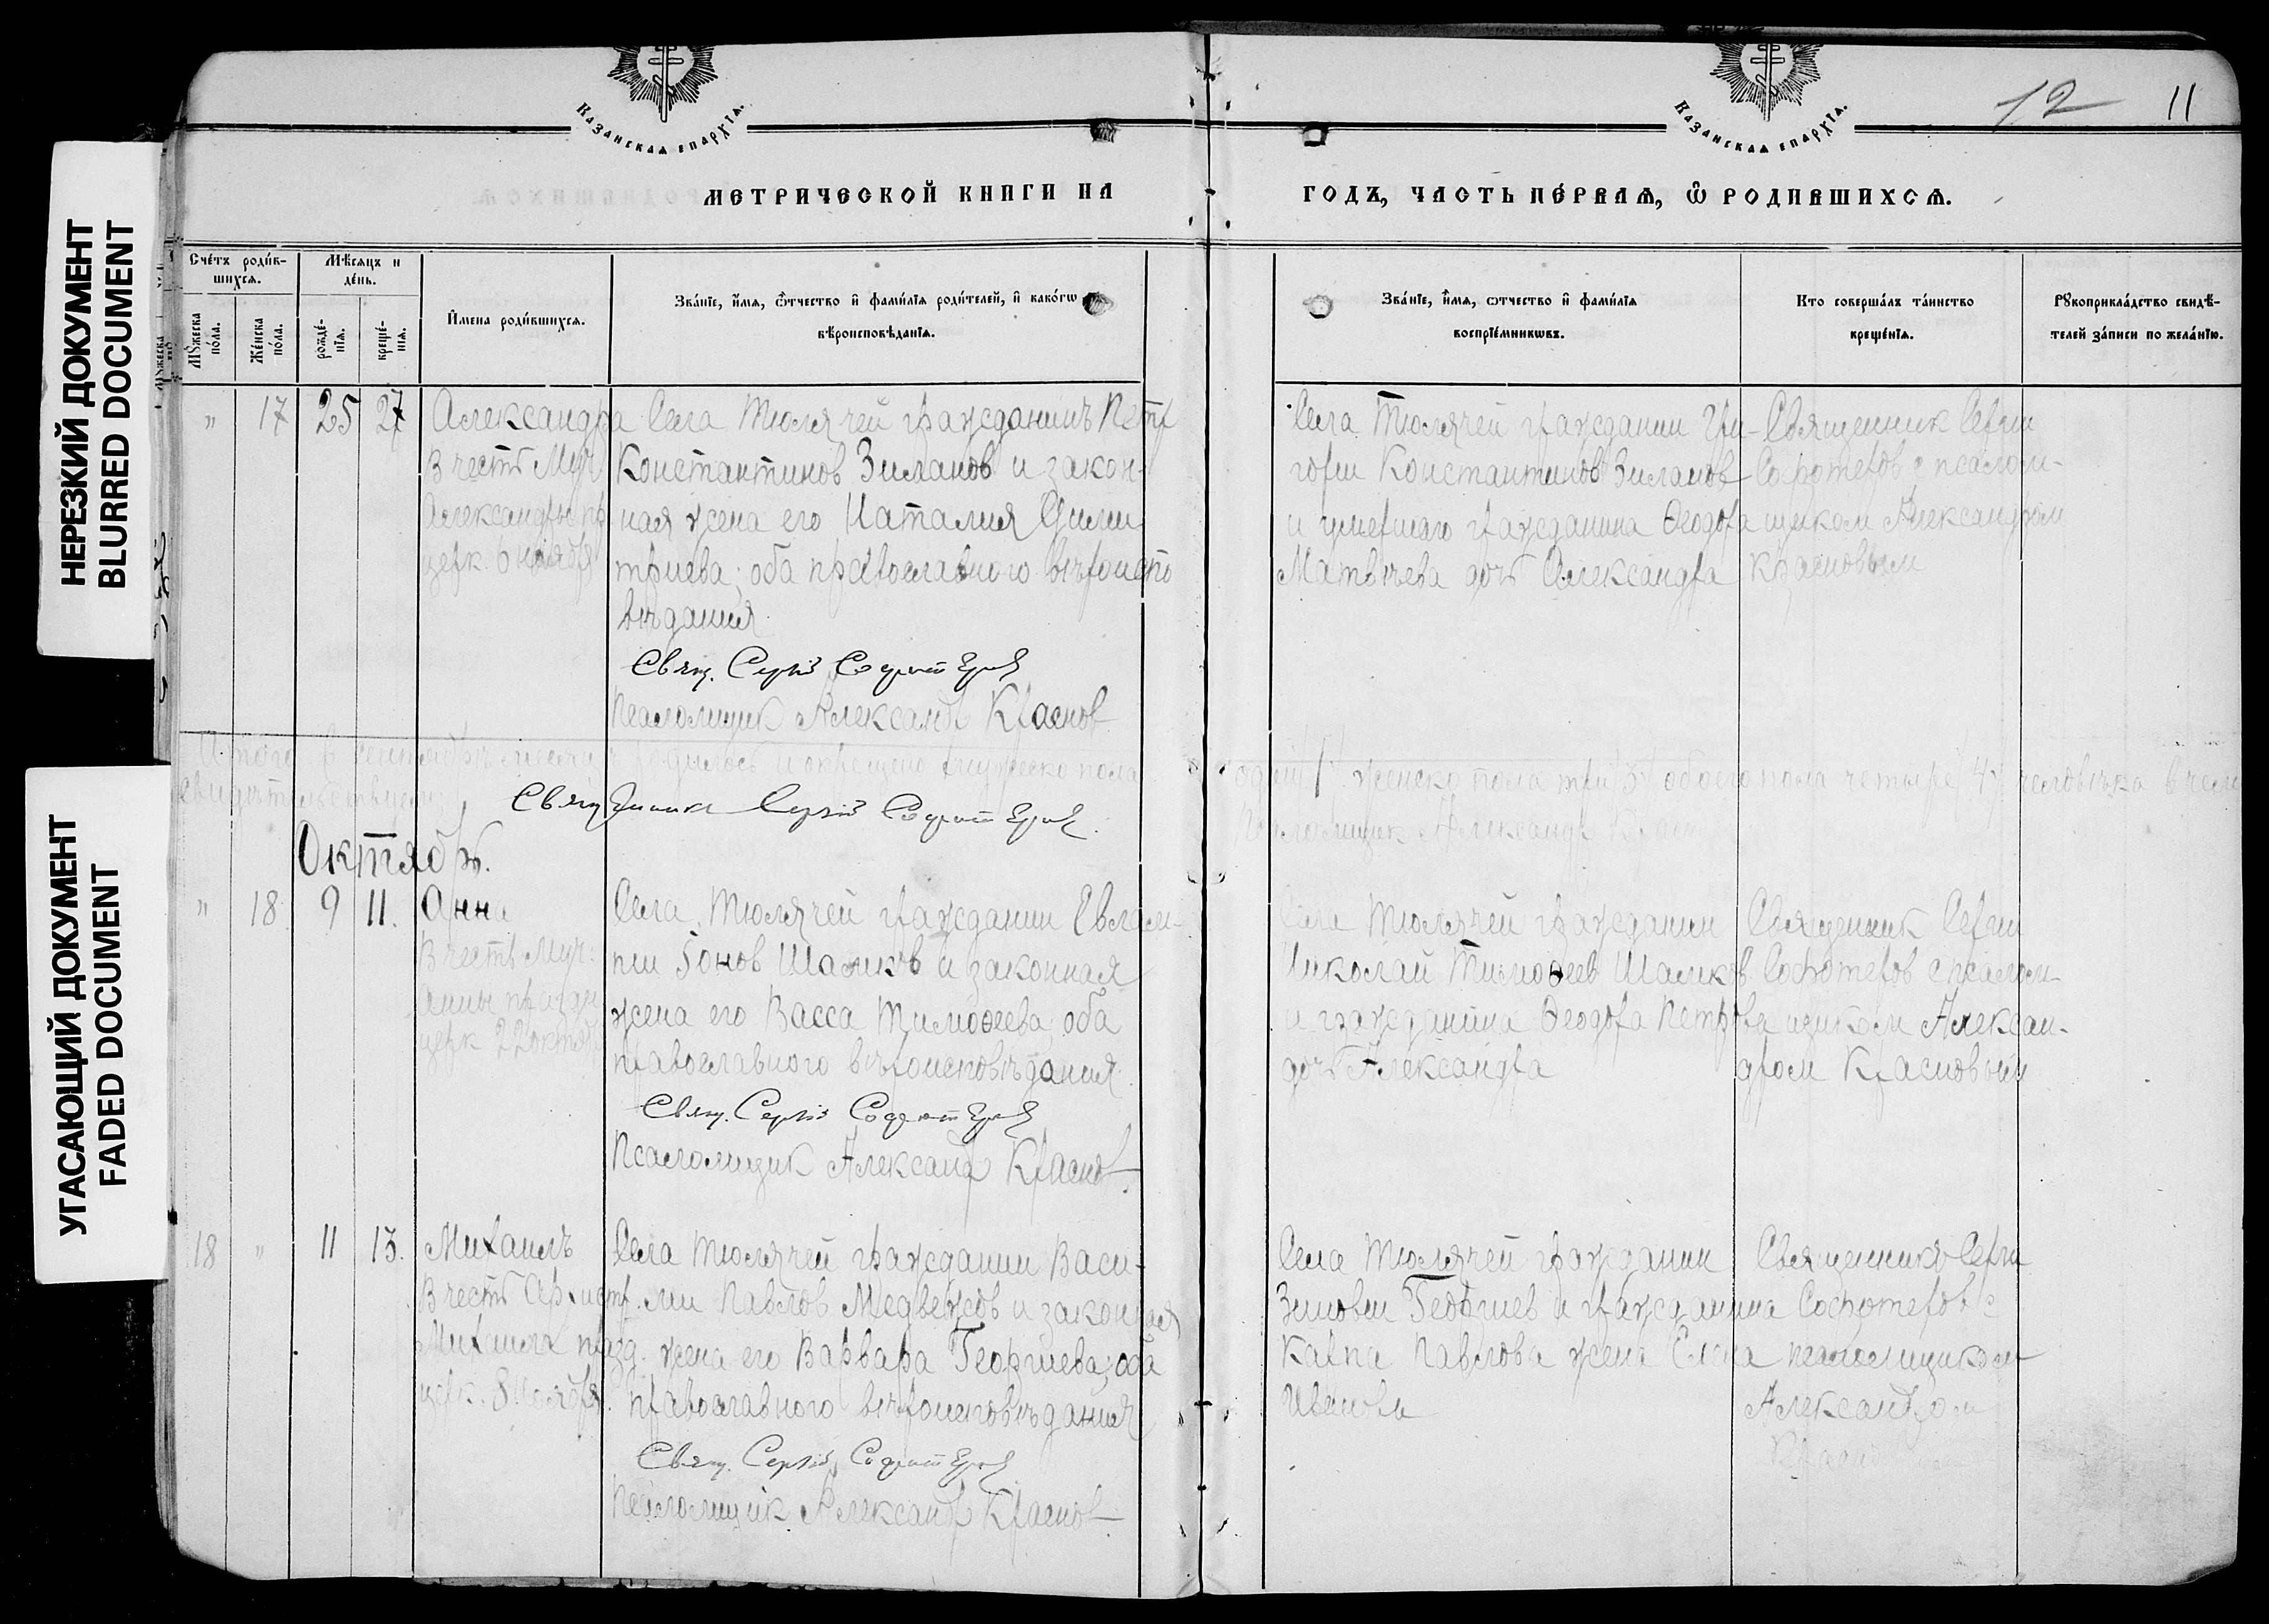 НЕРЕЗКИЙ ДОКУМЕНТ
BLURRED DOCUMENT
УГАСАЮЩИЙ ДОКУМЕНТ
FADED DOCUMENT
Казанская епархїѧ.
Казанская епархїѧ.
12 11
МЕТРИЧЕСКОЙ КНИГИ НА
ГОДЪ, ЧАСТЬ ПЕ́РВАѦ, Ѡ҆ РОДИВШИХСѦ.
Сче́тъ роди́в-
шихсѧ.
Мꙋ́жеска по́ла.
Же́нска по́ла.
Мѣ́сѧцъ и
де́нь.
рожде́-
нїѧ.
креще́-
нїѧ.
И҆мена роди́вшихсѧ.
Зва́нїе, и҆́мѧ, ѻ҆́тчество и҆ фами́лїѧ роди́телей, и҆ како́гѡ
вѣроисповѣ́данїѧ.
Зва́нїе, и҆́мѧ, ѻтчество и҆ фами́лїѧ
воспрїе́мникѡвъ.
Кто совершалъ та́инство
креще́нїѧ.
Рꙋкоприкла́дство свидѣ́-
телей за́писи по жела́нїю.
" 17 25 27
Александра
В честь Муч
Александры пр
церк. 6 ноября
Села Тюлячей гражданинъ Петр
Константинов Зиланов и закон-
ная жена его Наталия Дими
триева; оба православного вѣроиспо
вѣдания
Свящ. Сергій Софотеров
Псаломщик Александр Краснов
Села Тюлячей гражданин Гри-
горий Константинов Зиланов
и умершаго гражданина Ѳеодора
Матвѣева дочь Александра
Священник Сергий
Софотеров с псалом-
щиком Александром
Красновым
Итого в сентябрѣ месяцѣ родилось и окрещено мужеско пола
один /1/ женско пола три /3/ обоего пола четыре /4/ человѣка в чем
свидѣтельствуем:
Священникъ Сергій Софотеров.
Псаломщик Александр
Октябрь.
" 18 9 11.
Анна
В честь Муч:
Анны празд
церк 22 октяб
Села Тюлячей гражданин Евлам-
пий Іонов Шаликов и законная
жена его Васса Тимоѳеева; оба
православного вѣроисповѣдания
Свящ. Сергій Софотеров
Псаломщик Александр Краснов.
Села Тюлячей гражданин
Николай Тимоѳеев Шаликов
и гражданина Ѳеодора Петрова
дочь Александра
Священник Сергий
Софотеров с псалом-
щиком Алексан-
дром Красновым
18 " 11 13.
Михаилъ
В честь Архистр.
Михаила празд.
церк. 8 ноября.
Села Тюлячей гражданин Васи-
лий Павлов Медвежов и законная
жена его Варвара Георгиева; оба
православного вѣроисповѣдания
Свящ. Сергій Софотеров
Псаломщик Александр Краснов
Села Тюлячей гражданин
Зиновий Георгиев и гражданина
Карпа Павлова жена Елена
Иванова
Священникъ Сергий
Софотеров с
псаломщиком
Александром